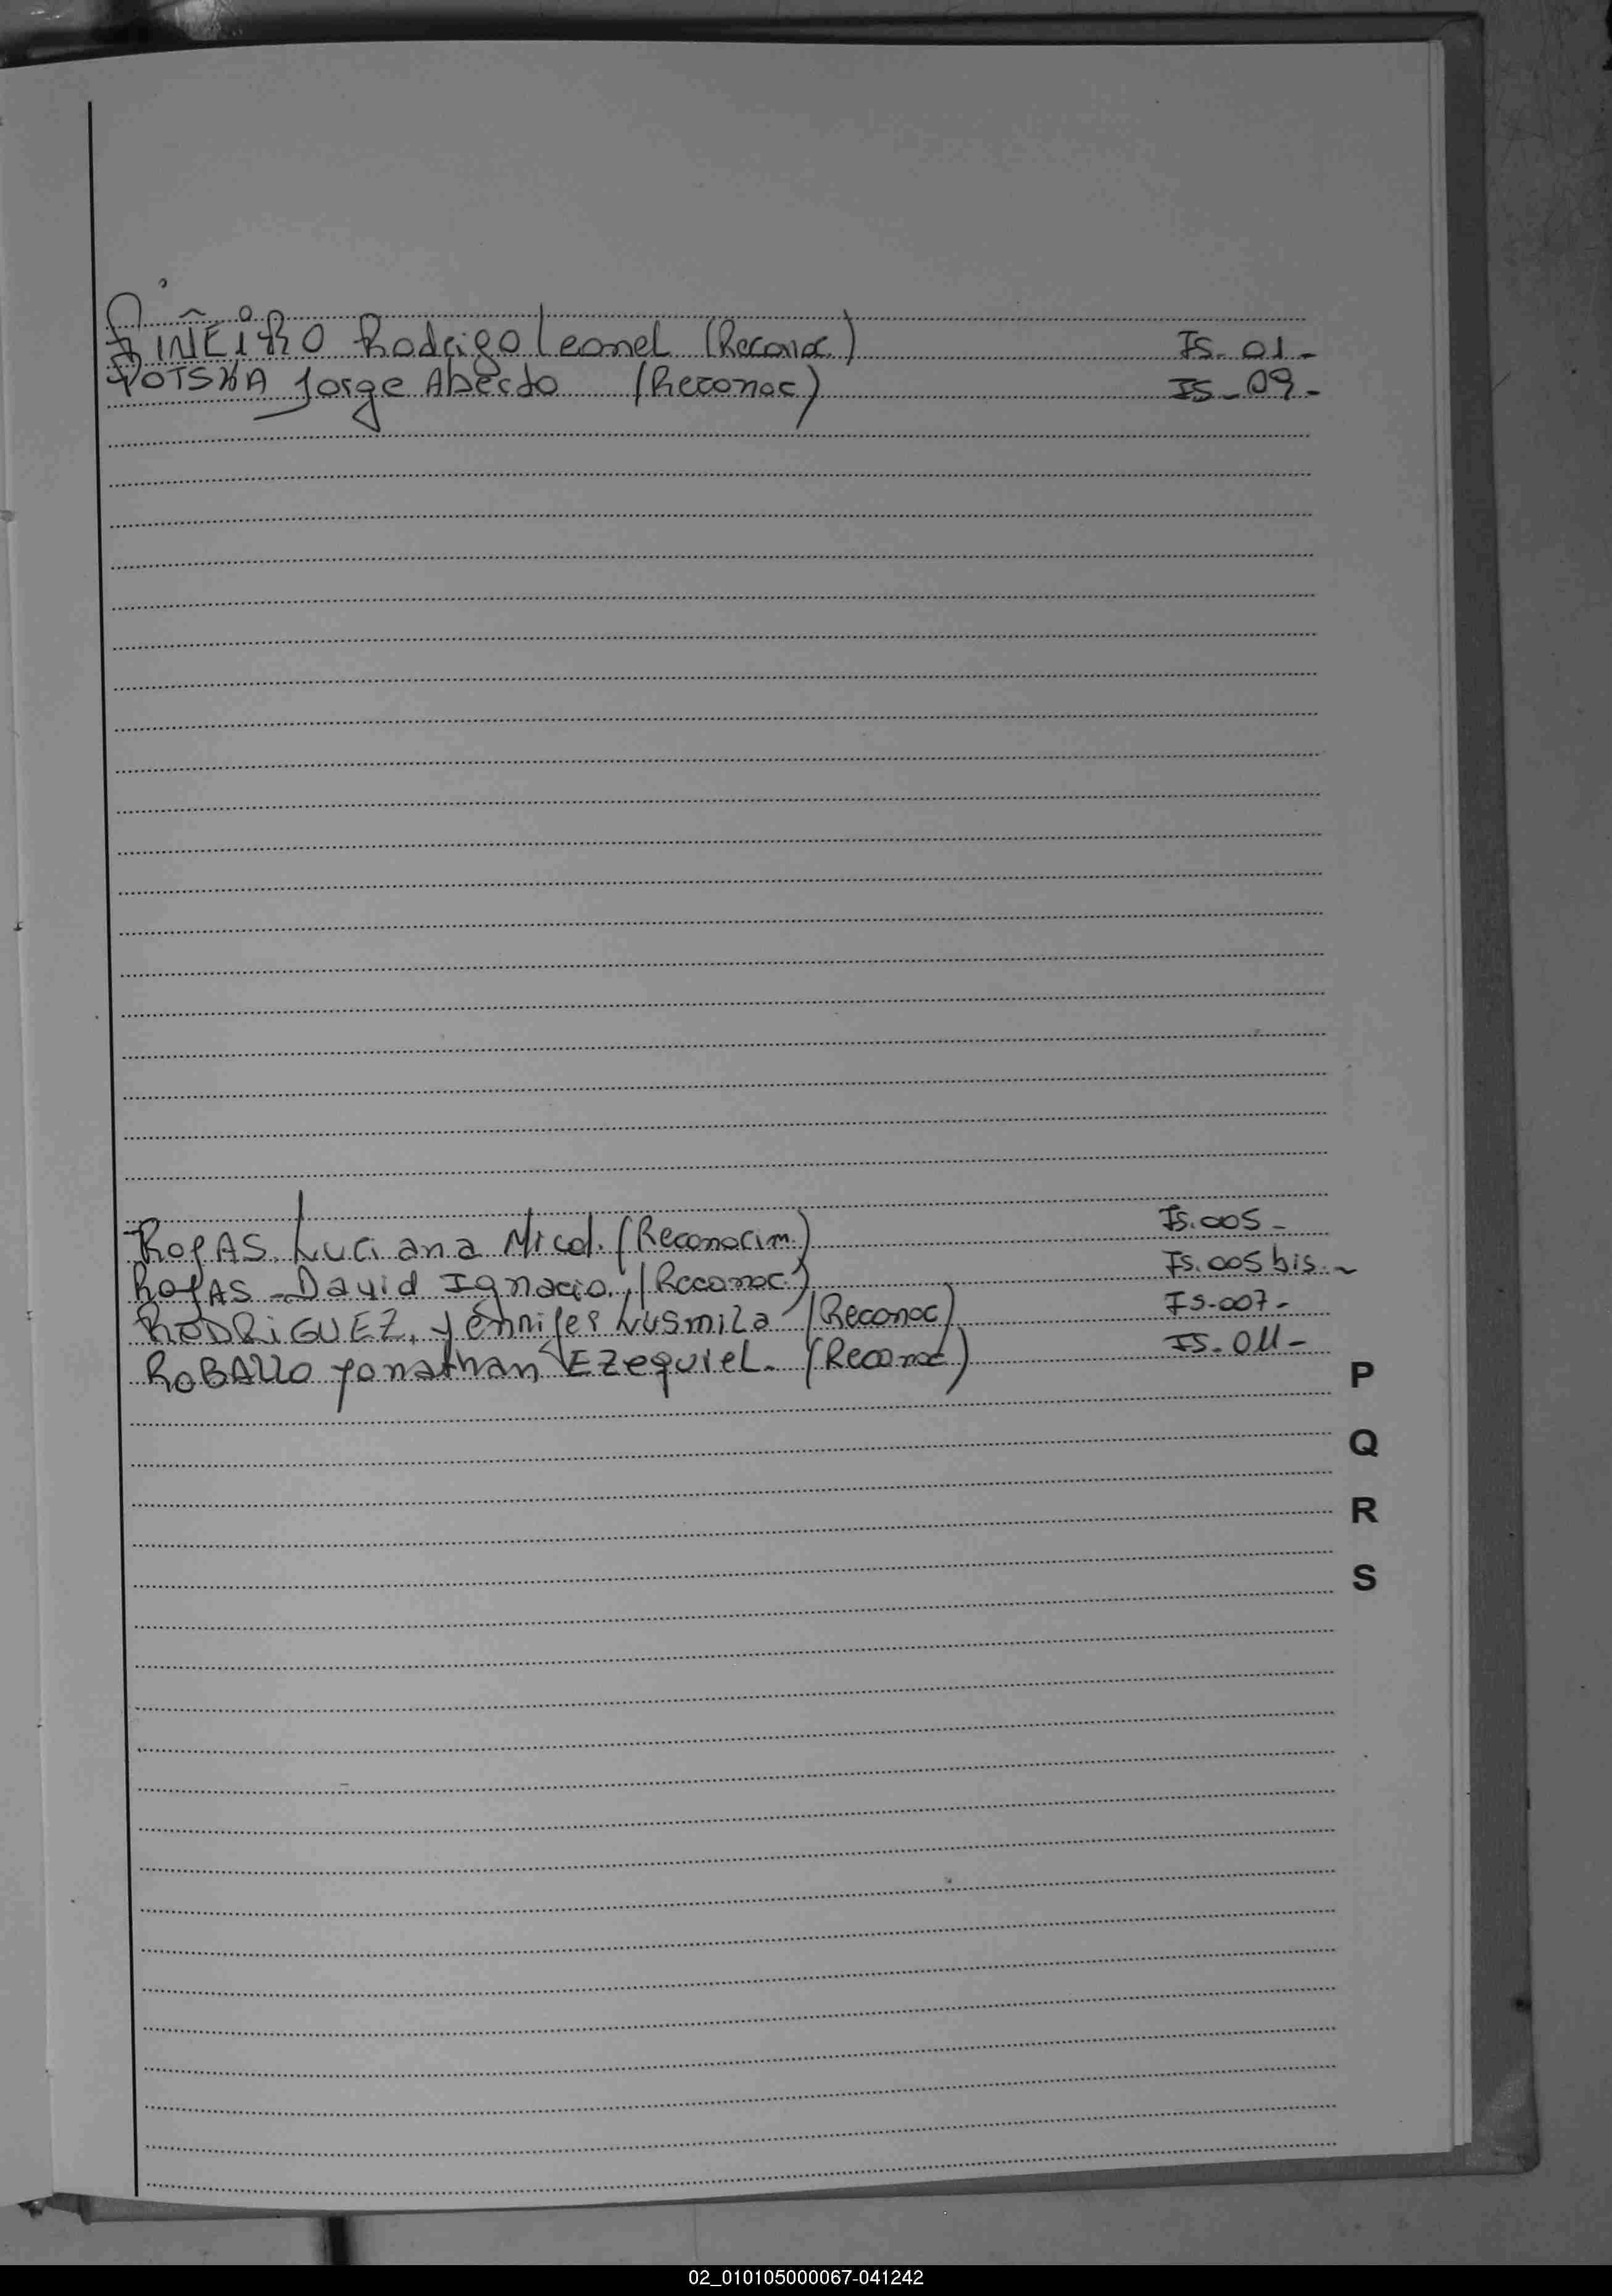 PIÑEIRO Rodrigo Leonel (Reconoc.) Fs. 01.-
POTSKA Jorge Abecto (Reconoc) Fs - 09.-
ROJAS. Luciana Nicol. (Reconocim.) Fs. 005 -
ROJAS - David Ignacio. (Reconoc.) Fs. 005 bis. -
RODRIGUEZ, Yennifer Lusmila (Reconoc) Fs. 007 -
ROBALLO Yonathan EZEquieL. (Reconoc) Fs. 011 -
P
Q
R
S
02_010105000067-041242